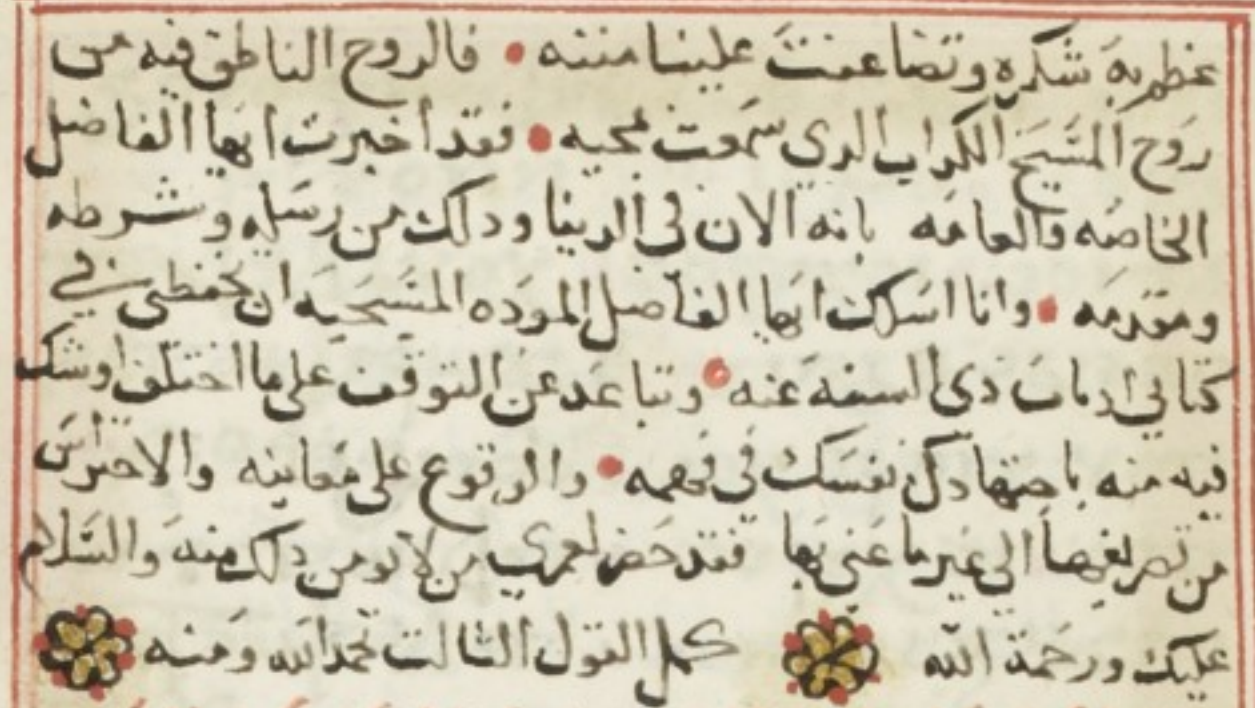 عظم به شكره وتضاعفت علينا مننه • فالروح الناطق فيه من
روح المسَيح الكداب الدى سمعت بمجيه • فقد اخبرت ايها الفاضل
الخاصه والعامه بانه الان فى الدنيا ودلك من رسَله وشرطه
ومقدمه • وانا اسَلك ايها الفاضل الموده المسَيحيه ان تحفظنى في
كتابي ادمات دى السفه عنه • وتباعد عن التوقف على ما اختلف اوشك
فيه منه باجتهادك نفسَك فى فهمه • والوقوع على معانيه والاحتراسَ
من تصريفها الى غير ما عنى بها فقد حَض لعمري من لا يومن دلك منه والسَلام
عليك ورحَمة الله كمل القول الثالت بحمد الله ومنه